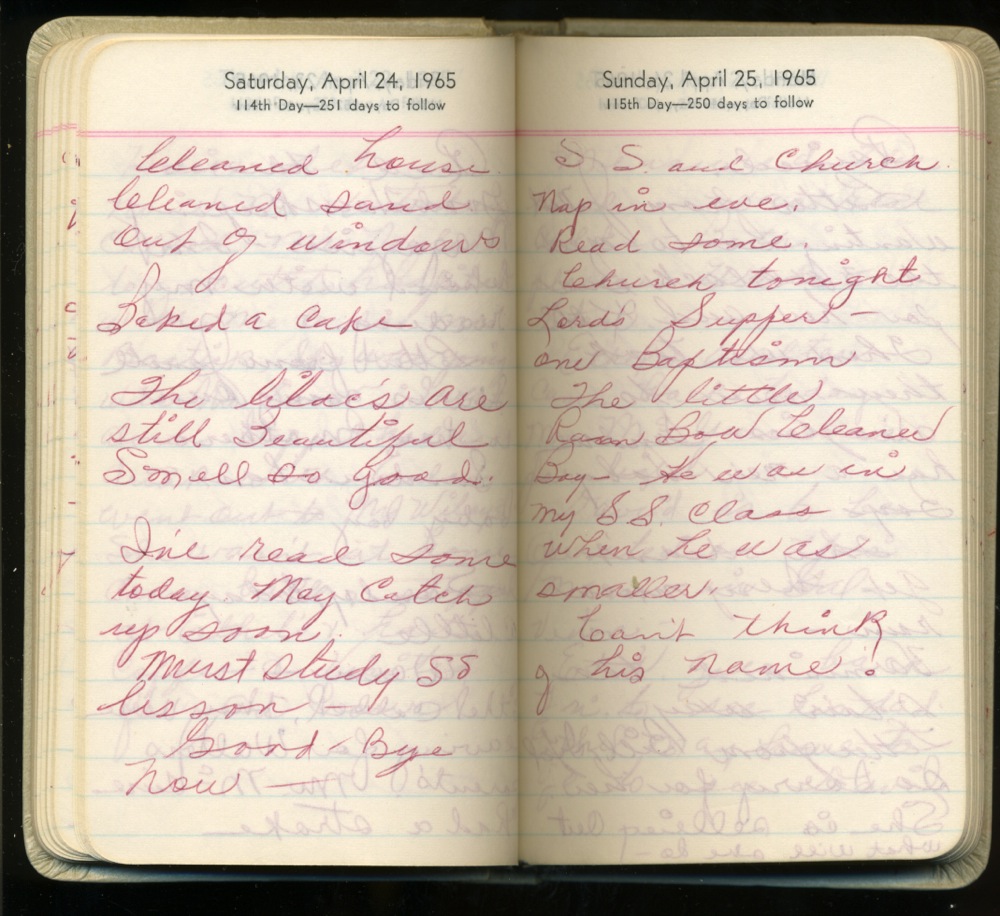 Saturday, April 24, 1965
114th Day—251 days to follow
Cleaned house
Cleaned sand
out of windows
Baked a Cake
The lilac's are
still Beautiful
Smell so good.
I've read some
today May Catch
up soon.
Must study SS
lesson —
Good-Bye
Now —
Sunday, April 25, 1965
115th Day—250 days to follow
S. S. and Church.
Nap in eve.
Read some.
Church tonight
Lord's Supper —
one Baptism
The little
Bow Cleaner
Boy - He was in
my S S. Class
when he was
smaller.
Can't think
of his name!